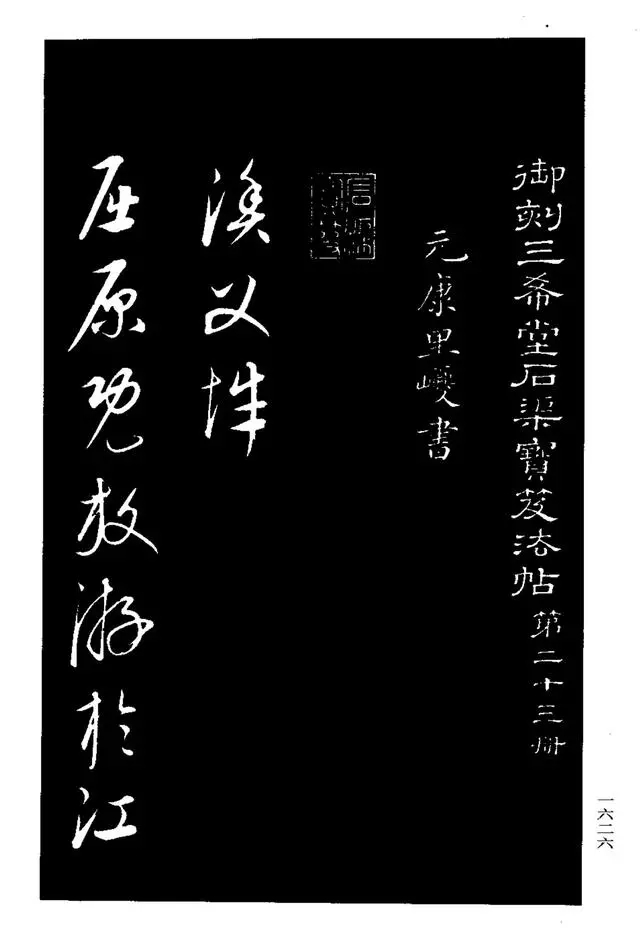 御刻三希堂石渠寶笈法帖第二十三册
元康里巎書
漁父辭
屈原既放游於江
一六二六